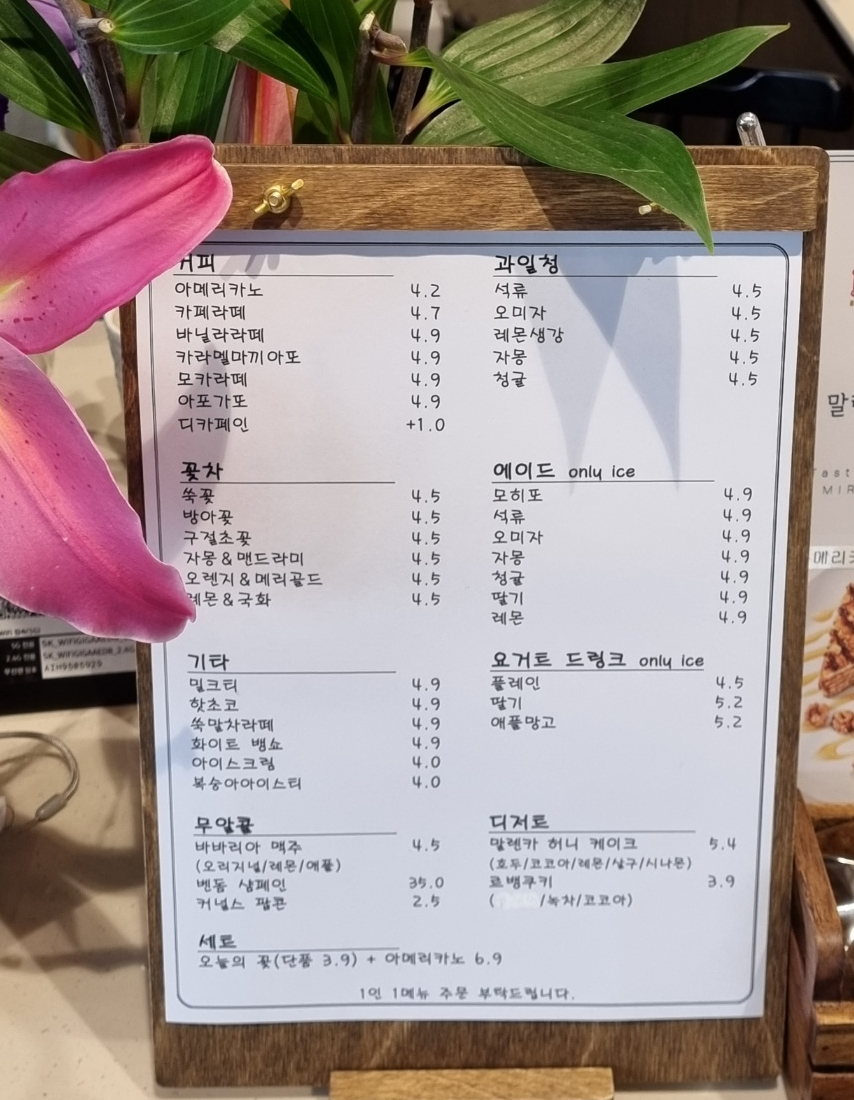 커피
아메리카노 4.2
카페라떼 4.7
바닐라라떼 4.9
카라멜마끼아또 4.9
모카라떼 4.9
아포가또 4.9
디카페인 +1.0
꽃차
쑥꽃 4.5
방아꽃 4.5
구절초꽃 4.5
자몽&맨드라미 4.5
오렌지&메리골드 4.5
레몬&국화 4.5
기타
밀크티 4.9
핫초코 4.9
쑥말차라떼 4.9
화이트 뱅쇼 4.9
아이스크림 4.0
복숭아아이스티 4.0
무알콜
바바리아 맥주 4.5
(오리지널/레몬/애플)
벤돔 샴페인 35.0
커널스 팝콘 2.5
과일청
석류 4.5
오미자 4.5
레몬생강 4.5
자몽 4.5
청귤 4.5
에이드 only ice
모히또 4.9
석류 4.9
오미자 4.9
자몽 4.9
청귤 4.9
딸기 4.9
레몬 4.9
요거트 드링크 only ice
플레인 4.5
딸기 5.2
애플망고 5.2
디저트
말렌카 허니 케이크 5.4
(호두/코코아/레몬/살구/시나몬)
르뱅쿠키 3.9
( /녹차/코코아)
세트
오늘의 꽃(단품 3.9) + 아메리카노 6.9
1인 1메뉴 주문 부탁드립니다.